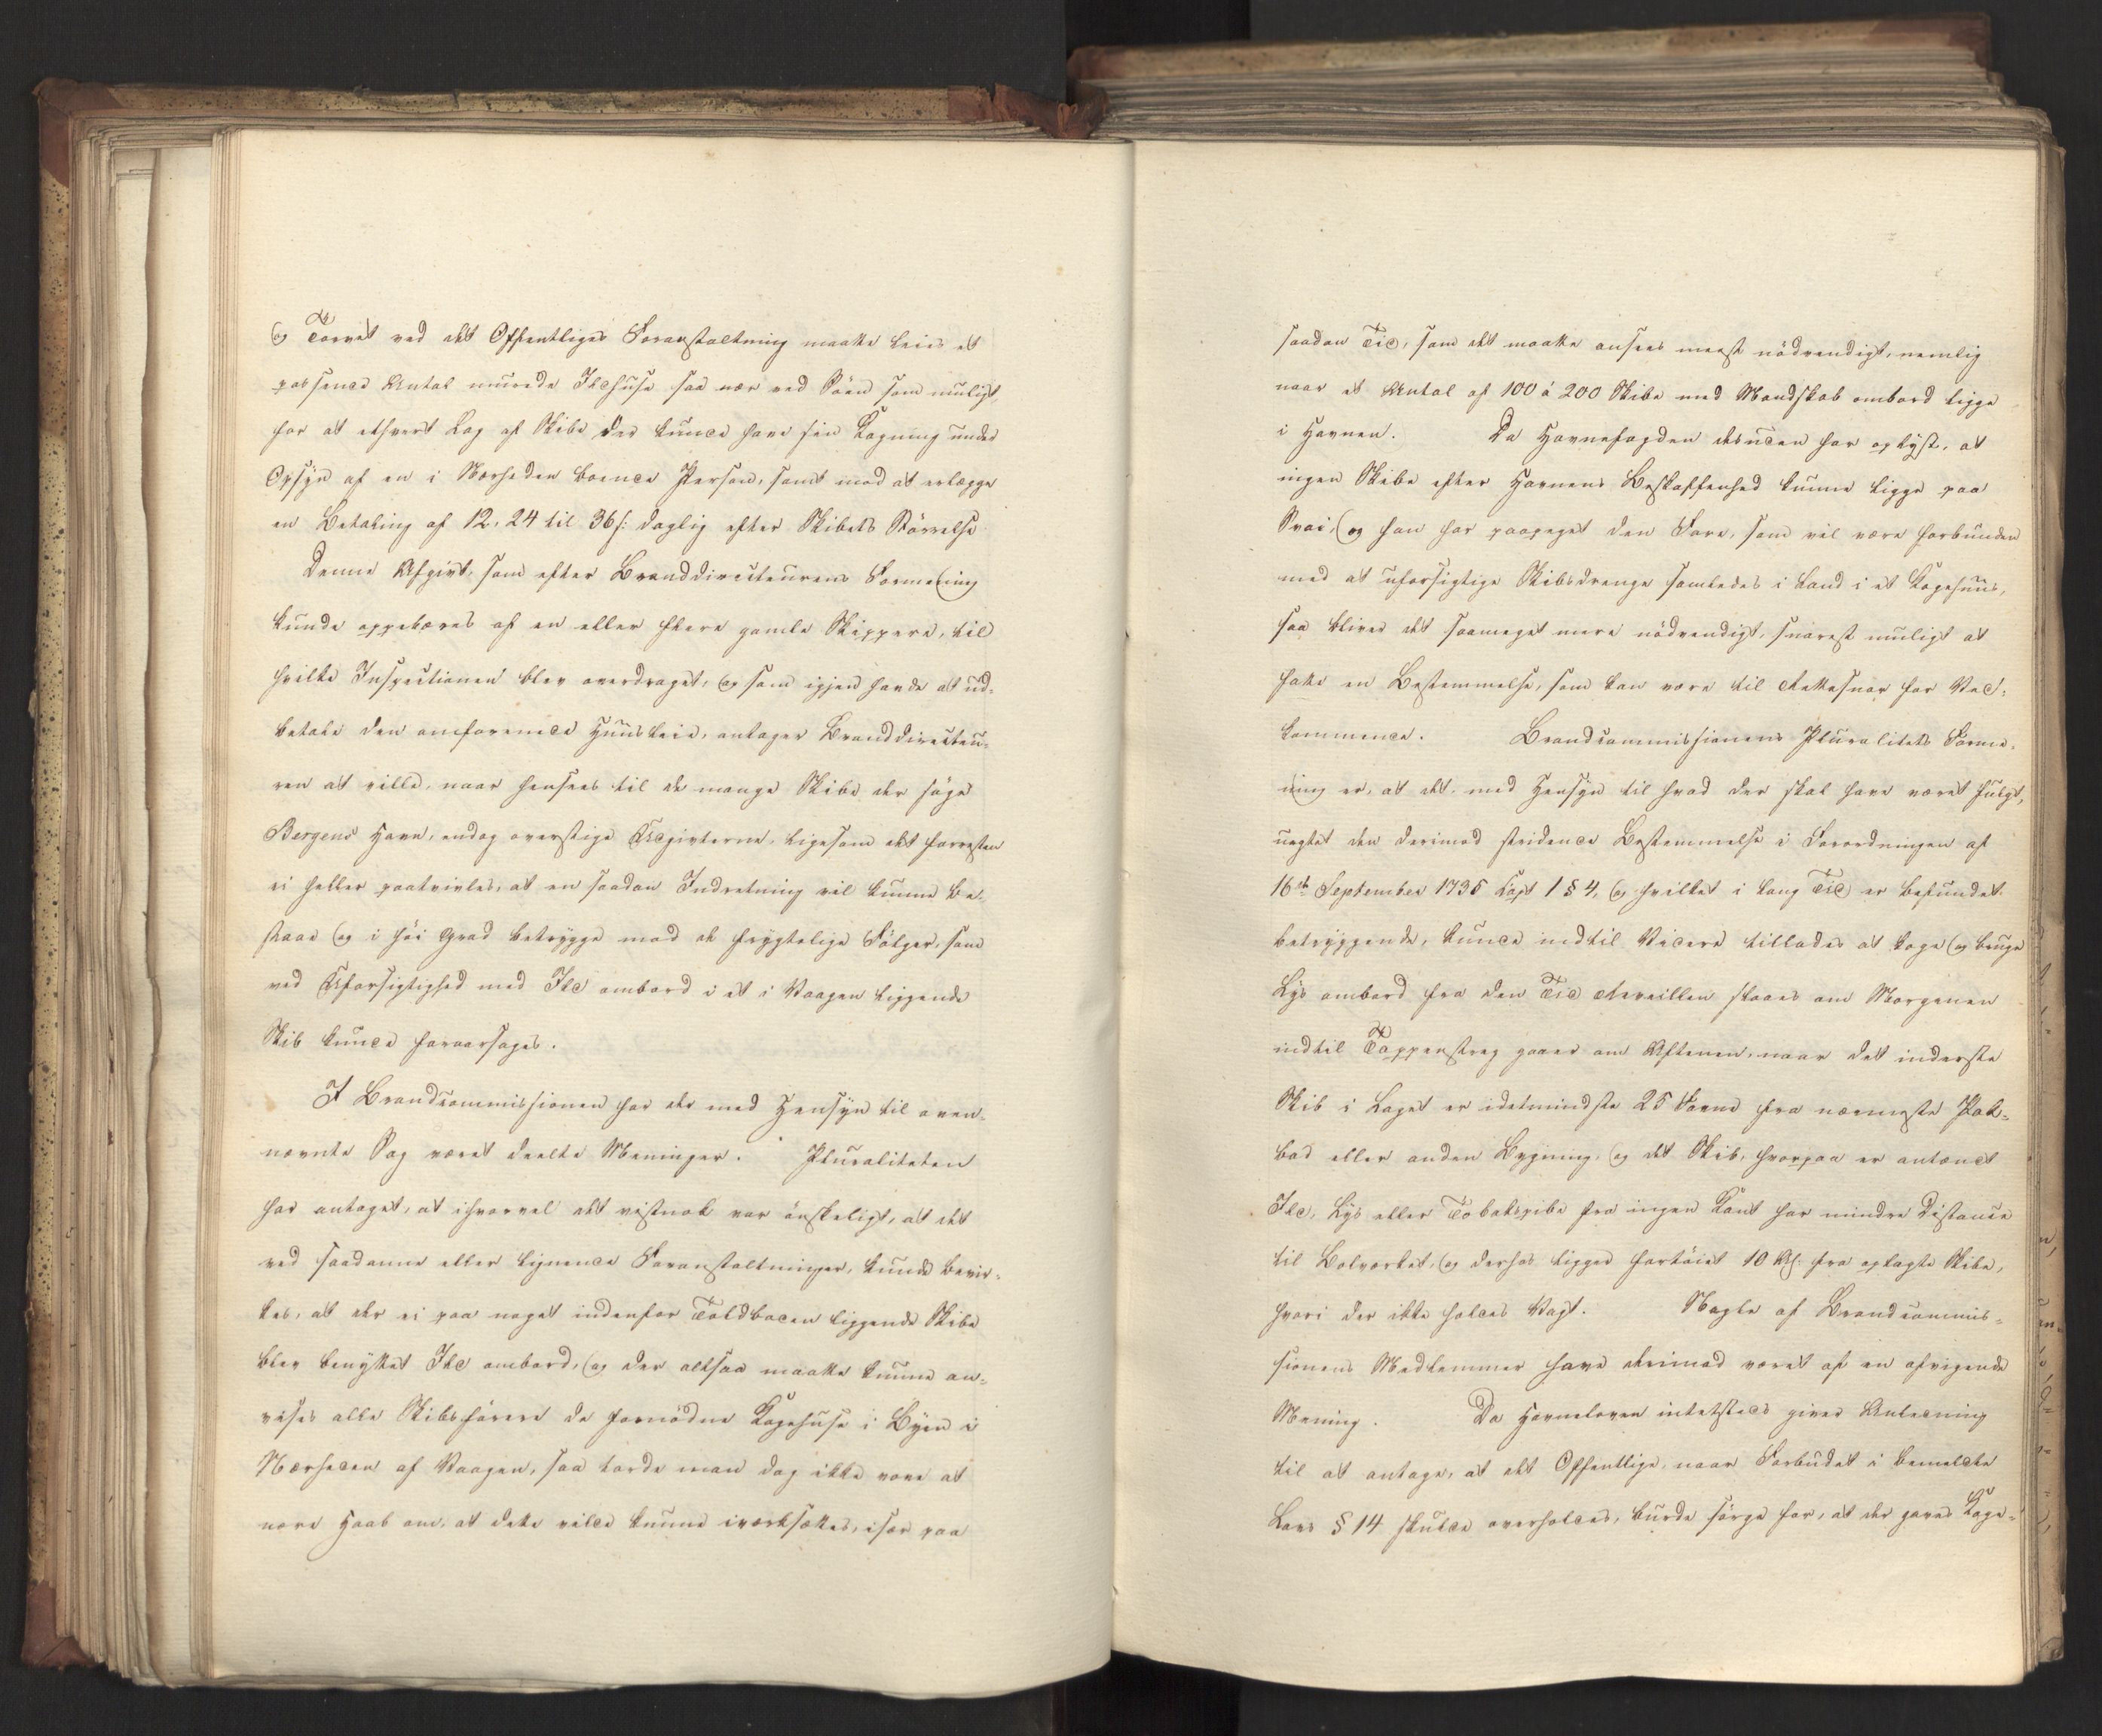 og Torvet ved det Offentliges Foranstaltning maatte leies et
passende Antal murede Ildhuse saa nær ved Søen som muligt,
for at ethvert Lag af Skibe der kunde have sin Kogning under
Opsyn af en i Nærheden boende Person, samt mod at erlægge
en Betaling af 12, 24 til 36 s: daglig efter Skibets Störrelse
Denne Afgivt, som efter Branddirecteurens Formening
kunde oppebæres af en eller flere gamle Skippere, til
hvilke Inspectionen blev overdraget, og som igjen havde at ud-
betale den omforenede Huusleie, antager Branddirecteu-
ren at ville, naar hensees til de mange Skibe der søge
Bergens Havn, endog overstige Udgivterne, ligesom det forresten
ei heller paatvivles, at en saadan Indretning vil kunne be-
staae og i høi Grad betrygge mod de frygtelige Følger, som
ved Uforsigtighed med Ild ombord i et i Vaagen liggende
Skib kunde foraarsages.
I Brandcommissionen har der med Hensyn til oven-
nævnte Sag været deelte Meninger. Pluraliteten
har antaget, at ihvorvel det vistnok var ønskeligt, at det
ved saadanne eller lignende Foranstaltninger, kunde bevir-
kes, at der ei paa noget indenfor Toldboden liggende Skibe
blev benyttet Ild ombord, og der altsaa maatte kunne an-
vises alle Skibsførere de fornødne Kogehuse i Byen i
Nærheden af Vaagen, saa torde man dog ikke vove at
nære Haab om, at dette vilde kunne iværksættes, især paa
saadan Tid, som det maatte ansees meest nödvendigt, nemlig
naar et Antal af 100 à 200 Skibe med Mandskab ombord ligge
i Havnen. Da Havnefogden desuden har oplyst, at
ingen Skibe efter Havnens Beskaffenhed kunne ligge paa
Svai, og han har paapeget den Fare, som vil være forbunden
med at uforsigtige Skibsdrenge samledes i Land i et Kogehuus,
saa bliver det saameget mere nödvendigt, snarest muligt at
fatte en Bestemmelse, som kan være til Rettesnor for Ved-
kommende. Brandcommissionens Pluralitets Forme-
ning er, at det med Hensyn til hvad der skal have været fulgt,
uagtet den derimod stridende Bestemmelse i Forordningen af
16de September 1735 Capt 1 § 4, og hvilket i lang Tid er befundet
betryggende, kunde indtil Videre tillades at koge og bruge
Lys ombord fra den Tid Reveillen slaaes om Morgenen
indtil Tappenstreg gaaer om Aftenen, naar det inderste
Skib i Laget er idetmindste 25 Favne fra nærmeste Pak-
bod eller anden Bygning, og det Skib, hvorpaa er antændt
Ild, Lys eller Tobakspibe fra ingen Kant har mindre Distance
til Bolværket, og derhos ligger fortöiet 10 Al: fra oplagte Skibe,
hvori der ikke holdes Vagt. Nogle af Brandcommis-
sionens Medlemmer have derimod været af en afvigende
Mening. Da Havneloven intetsteds giver Anledning
til at antage, at det Offentlige, naar Forbudet i bemeldte
Lovs § 14 skulde overholdes, burde sörge for, at der gaves Koge-